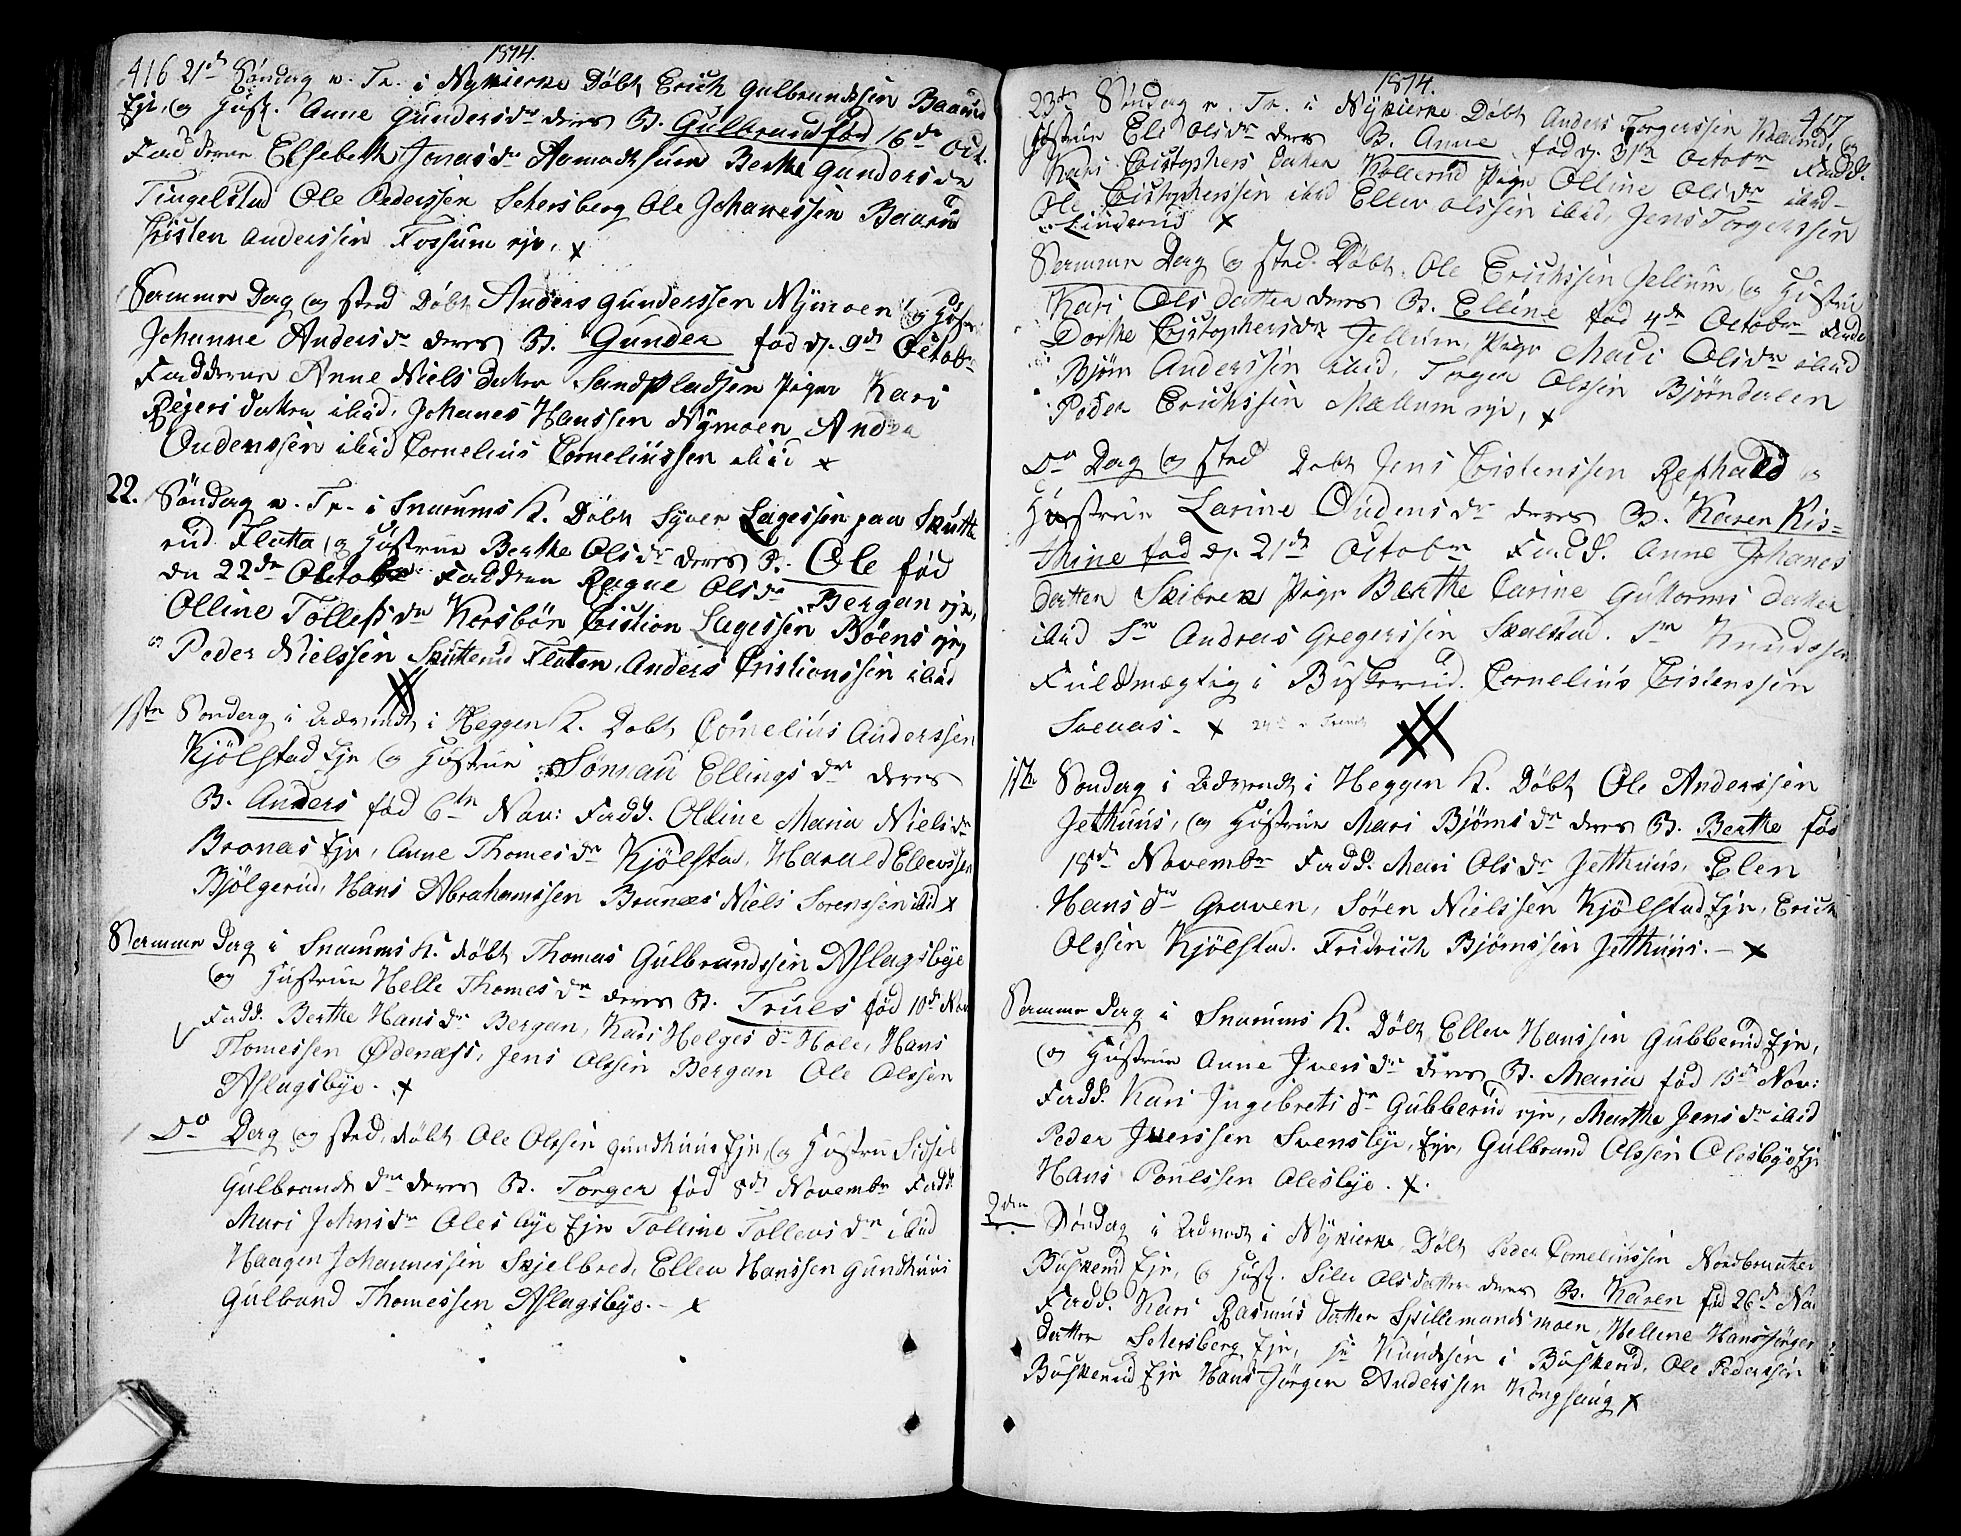 416 1814.
21de Søndag n. Tr. i Nykierke Døbt Erich Gulbrandssen Baarud
Eje, og Hust. Anne Gundersdr deres B. Gulbrand fød 16de Oct.
Fadderne Elsebeth Jonasdr Aamodt Berthe Gundersdr
Tingelstad Ole Pederssen Setersberg Ole Johanessen Baarud
Christen Anderssen Fossum eje, x
Samme Dag og sted Døbt Anders Gunderssen Nymoen og Hustr.
Johanne Andersdr deres B. Gunder fød d. 9de Octobr
Fadderne Anne Nielsdatter Sandpladsen Pige Kari
Rejersdatter ibid, Johanes Hanssen Nymoen Andrea
Oudenssen ibid Cornelius Corneliussen ibid x
22. Søndag n. Tr. i Snarums K. Døbt Syver Lagessen paa Skutte
rud Flata, og Hustrue Berthe Olsdr deres B. Ole fød
den 22de Octobr Fadderne Ragne Olsdr Bergan eje,
Olline Tollefsdr Korsbøn Cristion Lagessen Bøens eje,
og Peder Nielssen Skutterud Flaten, Anders Cristionssen ibid
1ste Søndag i Advendt i Heggen K. Døbt Cornelius Anderssen
Kjølstad Eje og Hustrue Sønnau Ellingsdr deres
B. Anders fød 6te Nov: Fadd. Olline Maria Nielsdr
Bronæs Eje, Anne Thomesdr Kjølstad, Harald Ellevssen
Bjølgerud, Hans Abrahamssen Brunæs Niels Sørenssen ibid x
Samme Dag i Snarums K. Døbt Thomas Gulbrandssen Aslagsbye
og Hustrue Helle Thomesdr deres B. Truls fød 10de Nov
Fadd. Berthe Hansdr Bergan, Kari Helgesdr Hole, Hans
Thomessen Ødenæss, Jens Olssen Bergan Ole Olssen
Aslagsbye. x
Do Dag og sted, døbt Ole Olssen Gundhuus Eje, og Hustrue Sidsel
Gulbrandsdr deres B. Torger fød 8de Novembr Fadd.
Mari Johnsdr Olesbye Eje Tolline Tollevsdr ibid
Haagen Johannessen Skjelbred, Ellev Hanssen Gundhuus
Gulbrand Thomessen Aslagsbye. - x
1814. 417
23de Søndag n. Tr. i Nykierke Døbt Anders Torgerssen Kollerud, og
Hustrue Eli Olsdr deres B. Anne fød d. 31te Octobr Fadd.
Kari Cristophersdatter Kollerud Pige Olline Olsdr ibid
Ole Cristopherssen ibid Ellev Olssen ibid, Jens Torgerssen
Linderud x
Samme Dag og sted Døbt Ole Erichssen Jellum, og Hustrue
Kari Olsdatter deres B. Elline fød 4de Octobr Fadd
Dorthe Cristophersdr Jellum, Pige Mari Olsdr ibid
Bjørn Anderssen ibid, Torger Olssen Bjørndalen
Peder Erichssen Mællum eje, x
Do Dag og sted Døbt Jens Cristenssen Refhald og
Hustrue Larine Oudensdr deres B. Karen Kis=
thine fød d. 21de Octobr Fadd. Anne Johanes
datter Skibren Pige Berthe Carine Guttormsdatter
ibid Sr Andreas Gregerssen Skalstad. Sr Knudssen
Fuldmægtig i Buskerud. Cornelius Cristenssen
Svevas. x 24de n Trinit
1ste Søndag i Advendt i Heggen K. Døbt Ole Anderssen
Jethuus, og Hustrue Mari Bjørnsdr deres B. Berthe fød
18de Novembr Fadd. Mari Olsdr Jethuus, Elen
Hansdr Graven, Søren Nielssen Kjølstad Eje, Erich
Olssen Kjølstad. Fridrich Bjørnssen Jethuus. - x
Samme Dag i Snarums K. Døbt Ellev Hanssen Gubberud Eje,
og Hustrue Anne Iversdr deres B. Maria fød 15de Nov:
Fadd. Kari Ingebretsdr Gubberud eje, Marthe Jensdr ibid
Peder Iverssen Svensbye, Eje, Gulbrand Olssen Olesbye Eje
Hans Poulssen Olesbye. x.
2den Søndag i Advendt i Nykierke Døbt Peder Corneliussen Nordbraaten
Buskerud Eje, og Hust. Siler Olsdatter deres B. Karen fød 26de No
Fadd. Kari Rasmusdatter Spillemandsmoen, Hellene Hans Jørgen
datter Setersberg Eje, Hr Knudssen i Buskerud, Ole Pederssen
Buskerud Eje Hans Jørgen Anderssen Kongsaug x